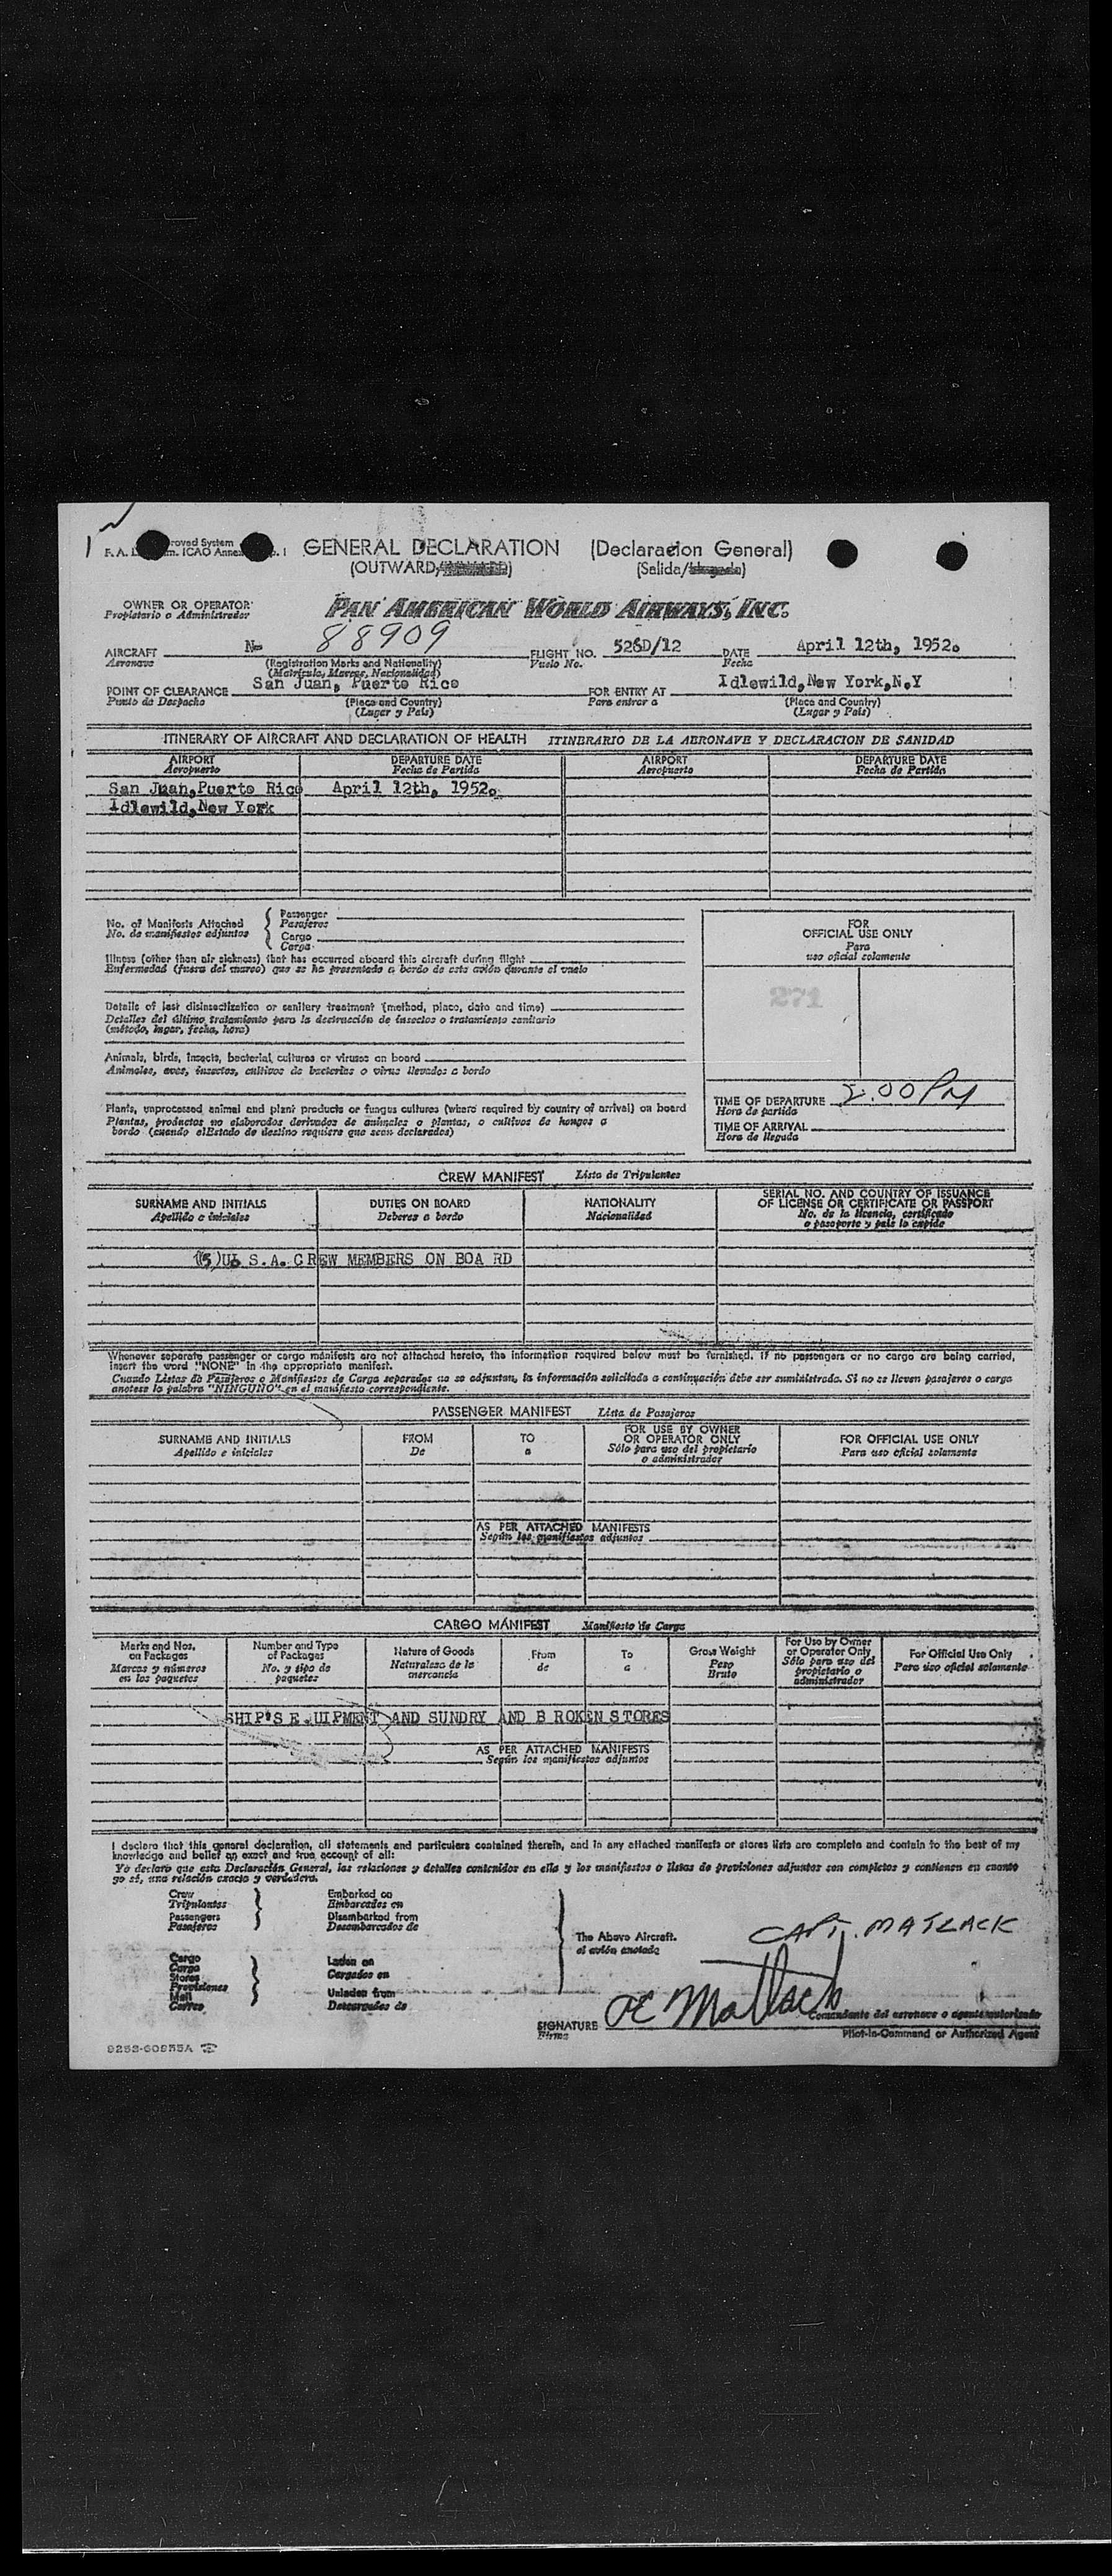 roved System
F. A. L. m. ICAO Annex p. 1
GENERAL DECLARATION (Declaración General)
(OUTWARD/ ) (Salida/ )
OWNER OR OPERATOR
Propietario o Administrador
PAN AMERICAN WORLD AIRWAYS, INC.
AIRCRAFT N- 88909 FLIGHT NO. 526D/12 DATE April 12th, 1952.
Aeronave (Registration Marks and Nationality) Vuelo No. Fecha
(Matrícula, Marcas, Nacionalidad)
POINT OF CLEARANCE San Juan, Puerto Rico FOR ENTRY AT Idlewild,New York,N.Y
Punto de Despacho (Place and Country) Para entrar a (Place and Country)
(Lugar y País) (Lugar y País)
ITINERARY OF AIRCRAFT AND DECLARATION OF HEALTH ITINERARIO DE LA AERONAVE Y DECLARACION DE SANIDAD
AIRPORT DEPARTURE DATE AIRPORT DEPARTURE DATE
Aeropuerto Fecha de Partida Aeropuerto Fecha de Partida
San Juan,Puerto Rico April 12th, 1952.
Idlewild,New York
No. of Manifests Attached { Passenger
No. de manifiestos adjuntos Pasajeros
Cargo
Carga
Illness (other than air sickness) that has occurred aboard this aircraft during flight
Enfermedad (fuera del mareo) que se ha presentado a bordo de este avión durante el vuelo
Details of last disinsectization or sanitary treatment (method, place, date and time)
Detalles del último tratamiento para la destrucción de insectos o tratamiento sanitario
(método, lugar, fecha, hora)
Animals, birds, insects, bacterial cultures or viruses on board
Animales, aves, insectos, cultivos de bacterias o virus llevados a bordo
Plants, unprocessed animal and plant products or fungus cultures (where required by country of arrival) on board
Plantas, productos no elaborados derivados de animales o plantas, o cultivos de hongos a
bordo (cuando elEstado de destino requiere que sean declarados)
FOR
OFFICIAL USE ONLY
Para
uso oficial solamente
271
TIME OF DEPARTURE 2:00 PM
Hora de partida
TIME OF ARRIVAL
Hora de llegada
CREW MANIFEST Lista de Tripulantes
SURNAME AND INITIALS DUTIES ON BOARD NATIONALITY SERIAL NO. AND COUNTRY OF ISSUANCE
OF LICENSE OR CERTIFICATE OR PASSPORT
Apellido e iniciales Deberes a bordo Nacionalidad No. de la licencia, certificado
o pasaporte y país lo expide
(5)U. S.A. CREW MEMBERS ON BOA RD
Whenever separate passenger or cargo manifests are not attached hereto, the information required below must be furnished. If no passengers or no cargo are being carried,
insert the word "NONE" in the appropriate manifest.
Cuando Listas de Pasajeros o Manifiestos de Carga separados no se adjuntan, la información solicitada a continuación debe ser suministrada. Si no se lleven pasajeros o carga
anotese la palabra "NINGUNO" en el manifiesto correspondiente.
PASSENGER MANIFEST Lista de Pasajeros
SURNAME AND INITIALS FROM TO FOR USE BY OWNER
OR OPERATOR ONLY FOR OFFICIAL USE ONLY
Apellido e iniciales De a Sólo para uso del propietario
o administrador Para uso oficial solamente
AS PER ATTACHED MANIFESTS
Según los manifiestos adjuntos
CARGO MANIFEST Manifiesto de Carga
Marks and Nos.
on Packages
Marcas y números
en los paquetes
Number and Type
of Packages
No. y tipo de
paquetes
Nature of Goods
Naturaleza de la
mercancía
From
de
To
a
Gross Weight
Peso
Bruto
For Use by Owner
or Operator Only
Sólo para uso del
propietario o
administrador
For Official Use Only
Para uso oficial solamente
SHIP'S E.UIPMENT AND SUNDRY AND B ROKEN STORES
AS PER ATTACHED MANIFESTS
Según los manifiestos adjuntos
I declare that this general declaration, all statements and particulars contained therein, and in any attached manifests or stores lists are complete and contain to the best of my
knowledge and belief an exact and true account of all:
Yo declaro que esta Declaración General, las relaciones y detalles contenidos en ella y los manifiestos o listas de provisiones adjuntos son completos y contienen en cuanto
yo sé, una relación exacta y verdadera.
Crew
Tripulantes
Passengers
Pasajeros
Embarked on
Embarcados en
Disembarked from
Desembarcados de
Cargo
Carga
Stores
Provisiones
Mail
Correo
Laden on
Cargados en
Unladen from
Descargados de
The Above Aircraft.
el avión anotado
CAPT. MATLACK
SIGNATURE JE Matlack
Firma
Comandante del aeronave o agente autorizado
Pilot-in-Command or Authorized Agent
9253-60935A